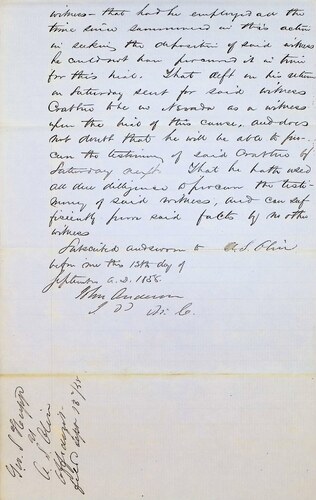 witness - that had he employed all the
time since summoned in this action
in seeking the deposition of said witness
he could not have procured it in time
for this trial. That deft on his return
on Saturday sent for said witness
Crabtree to be in Nevada as a witness
upon the trial of this cause, and does
not doubt that he will be able to pro-
cure the testimony of said Crabtree by
Saturday next. That he hath used
all due dilligence to procure the testi-
mony of said witness, and can suf
ficiently prove said facts by no other
witness
Subscribed and sworn to A. S.
before me this 13th day of
September A. D. 1858.
John Anderson
J P
Geo. S.
vs
A. S.
Affidavit.
filed Sept 13th/58